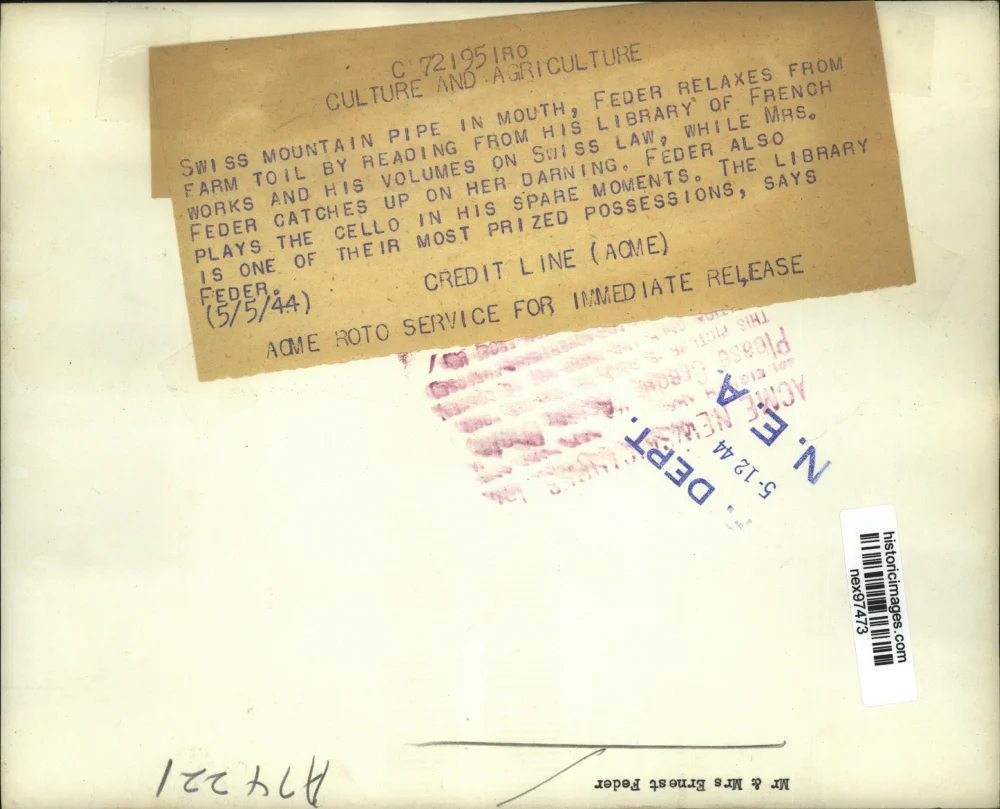 C 72195IRO
CULTURE AND AGRICULTURE
SWISS MOUNTAIN PIPE IN MOUTH, FEDER RELAXES FROM
FARM TOIL BY READING FROM HIS LIBRARY OF FRENCH
WORKS AND HIS VOLUMES ON SWISS LAW, WHILE MRS.
FEDER CATCHES UP ON HER DARNING. FEDER ALSO
PLAYS THE CELLO IN HIS SPARE MOMENTS. THE LIBRARY
IS ONE OF THEIR MOST PRIZED POSSESSIONS, SAYS
FEDER.
(5/5/44)
CREDIT LINE (ACME)
ACME ROTO SERVICE FOR IMMEDIATE RELEASE
THIS PICTURE
Please Credit
ACME NEWS
N. E. A.
5-12 44
DEPT.
historicimages.com
nex97473
Mr & Mrs Ernest Feder
A74221